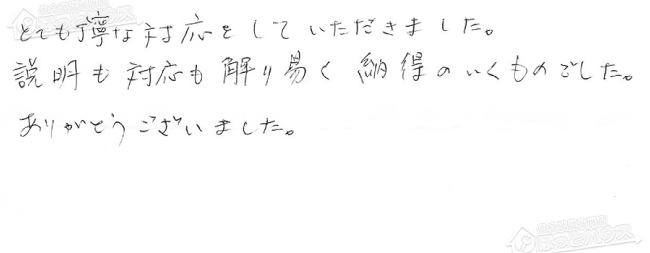 とても丁寧な対応をしていただきました。
説明も対応も解り易く納得のいくものでした。
ありがとうございました。